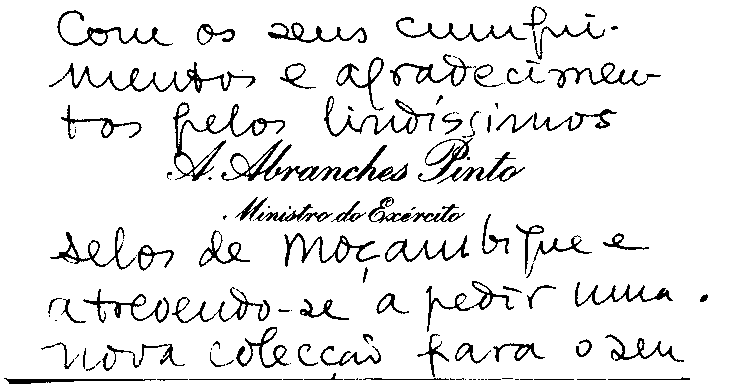 Com os seus cumpri-
mentos e agradecimen-
tos pelos lindíssimos
A. Abranches Pinto
Ministro do Exército
selos de Moçambique e
atrevendo-se a pedir uma
nova colecção para o seu